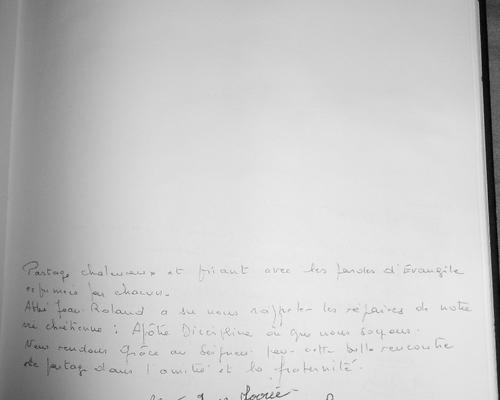 Partage chaleureux et priant avec les paroles d'Évangile
exprimées par chacun.
Abbé Jean Roland a su nous rappeler les repaires de notre
vie chrétienne : Apôtre Discipline où que nous soyons.
Nous rendons Grâce au Seigneur pour cette belle rencontre
de partage dans l'amitié et la fraternité.